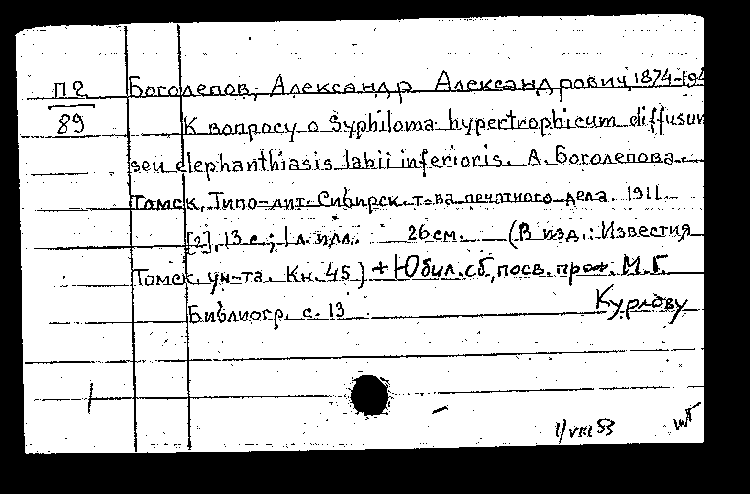 П2 Боголепов, Александр Александрович, 1874-194
89 К вопросу о Syphiloma hypertrophicum diffusum
seu elephanthiasis labii inferioris. А. Боголепова.
Томск, Типо-лит. Сибирск. т-ва печатного дела. 1911.
[2], 13 с.; 1 л. илл. 26 см. (В изд.: Известия
Томск. ун-та. Кн. 45) + Юбил. сб., посв. проф. М.Г.
Курлову
Библиогр. с. 13
1/VIII 53